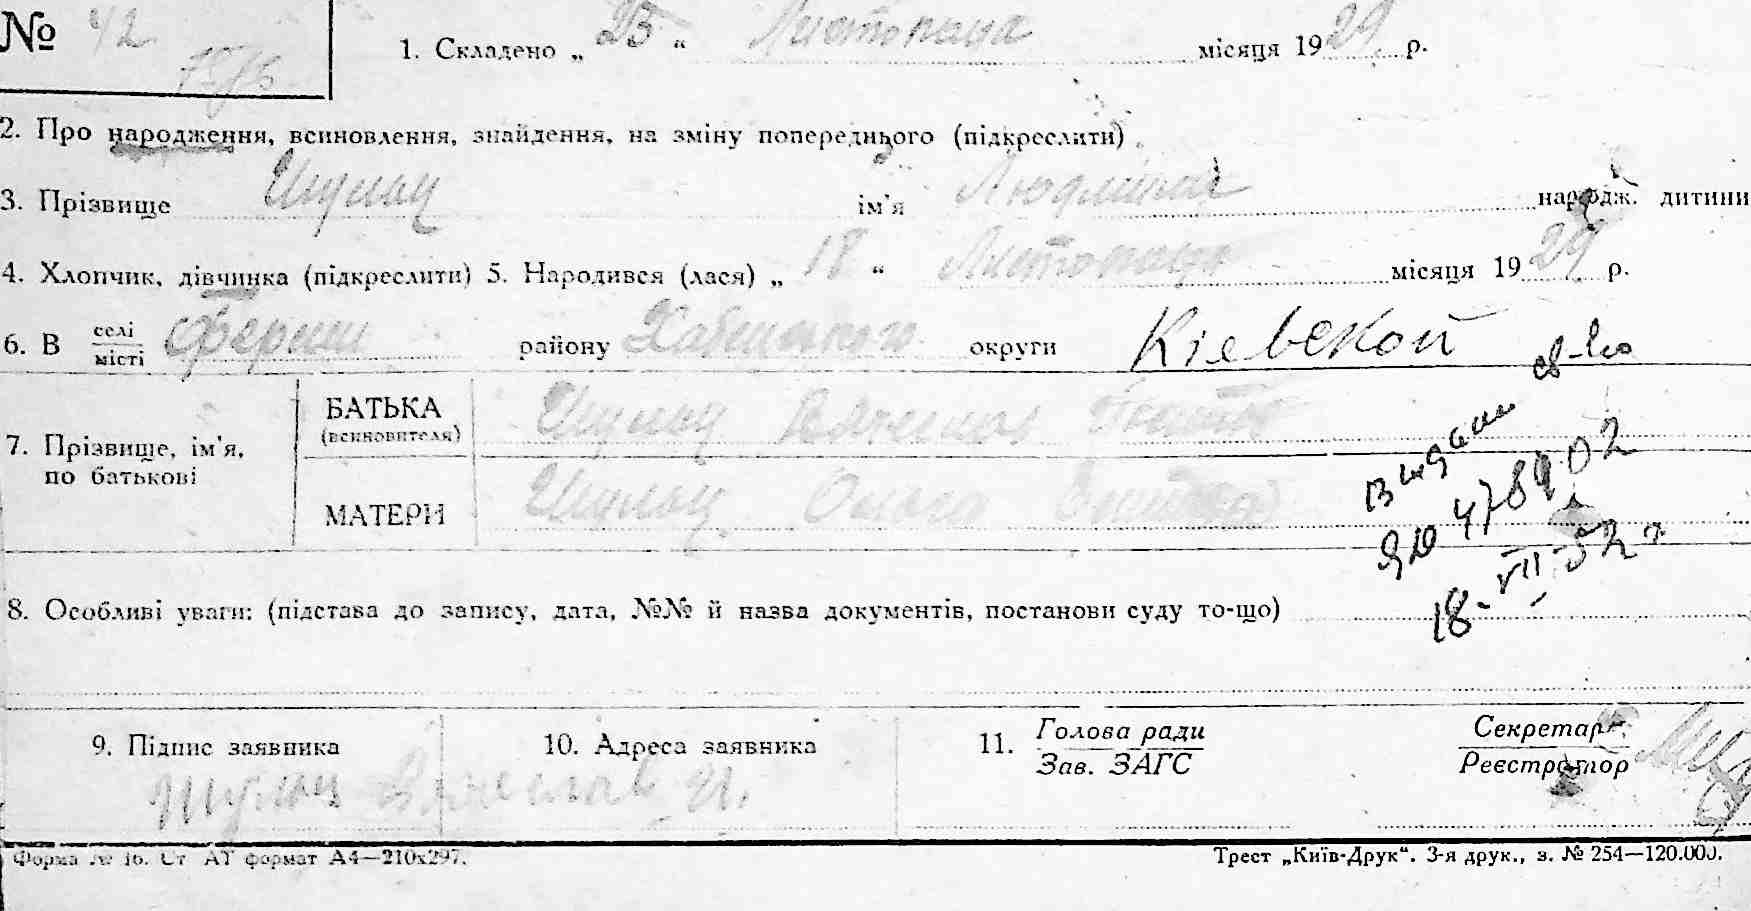 № 42
1. Складено „ 25 “ Листопада місяця 1929 р.
2. Про народження, всиновлення, знайдення, на зміну попереднього (підкреслити)
3. Прізвище Шульц ім'я Людмила народж. дитини
4. Хлопчик, дівчинка (підкреслити) 5. Народився (лася) „ 18 “ Листопада місяця 1929 р.
6. В селі/місті району округи Кіевской
7. Прізвище, ім'я, по батькові
БАТЬКА (всиновителя) Шульц
МАТЕРИ Шульц Ольга
св-во
18-VII-52 г
8. Особливі уваги: (підстава до запису, дата, №№ й назва документів, постанови суду то-що)
9. Підпис заявника
10. Адреса заявника
11. Голова ради Секретар
Зав. ЗАГС Реєстратор
Шульц
Форма № 16. Ст АТ формат А4—210x297.
Трест „Київ-Друк“. 3-я друк., з. № 254—120.000.